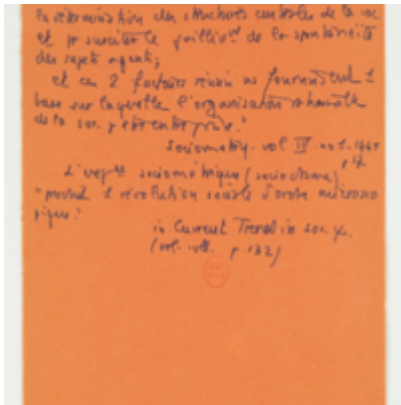 la détermination des structures centrales de la soc
et pr susciter le jailliss^t de la spontanéité
des sujets agents,
et ces 2 facteurs réunis ns fournissent 1
base sur laquelle l'organisation rationnelle
de la soc. y être entreprise."
Sociometry. vol IV. no 1. 1941
p
L'exp^ce sociométrique (sociodrame)
"produit 1 révolution sociale d'ordre microsco
pique."
in Current Trend in soc. ψ.
(vol. coll. p 132)